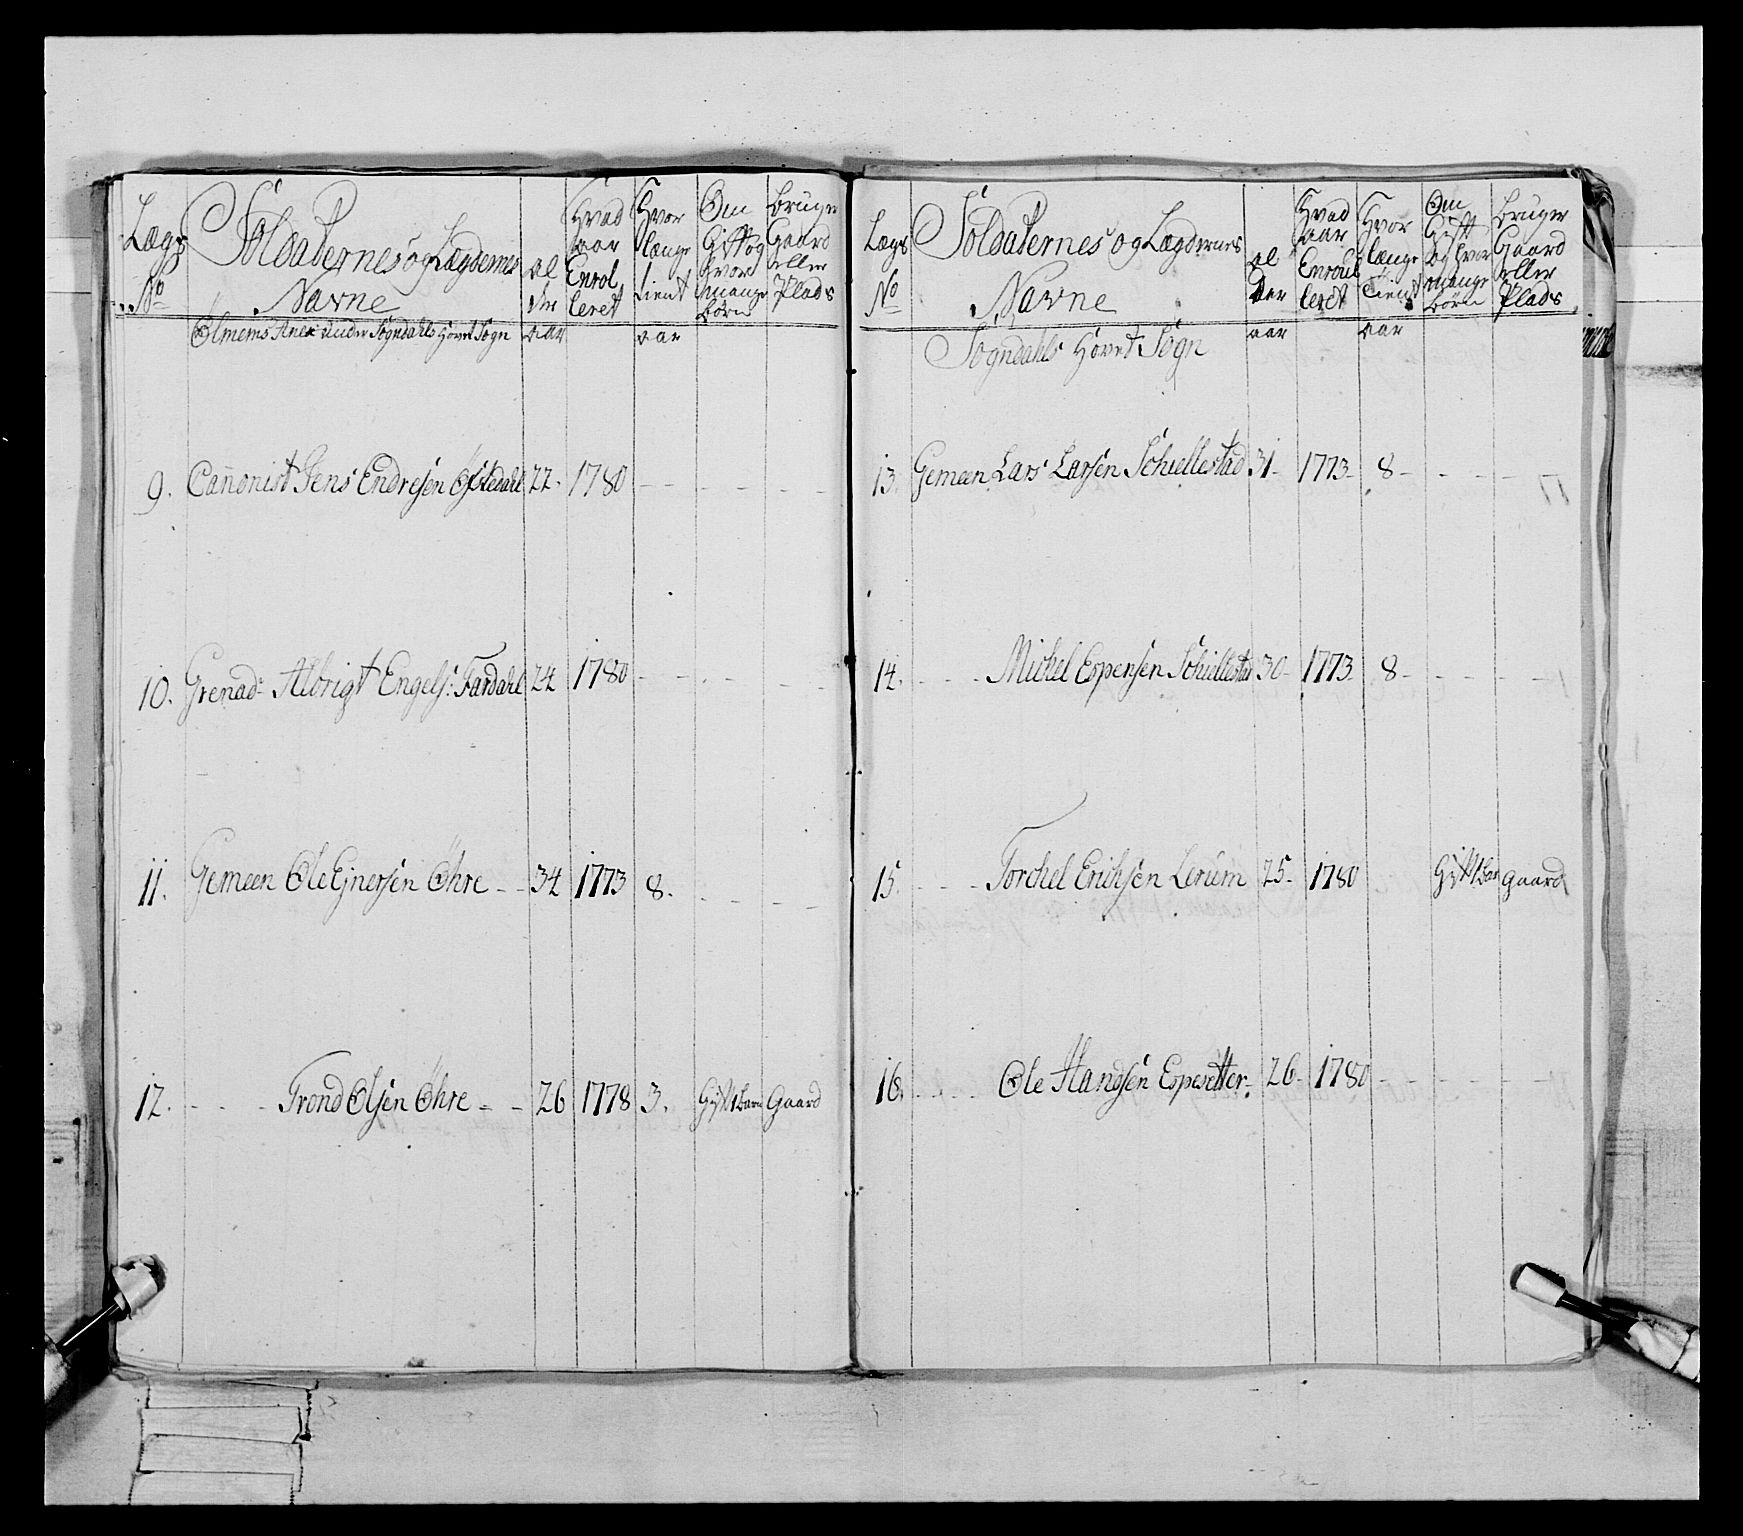 Lægs Soldaternes og Lægdernes
No Navne
al
der
Hvad
aar
Enrol
leret
Hvor
længe
tient
Om
Gift og
hvor
mange
børn
bruger
Gaard
eller
Plads
Olmems Anex under Sogndahls Hovet Sogn aar aar
9. Cañonist Jens Endresen 22- 1780 - - - - - -
10. Grenad: Albrigt Engels: Fardahl 24 1780 - - - - - -
11. Gemeen Ole Ejnersen Øhre - - 34 1773 8. - - - -
12. - - - - Trond Olsen Øhre - - 26 1778 3. Gift 1 barn Gaard
Lægs Soldaternes og Lægdernes
No Navne
al
der
Hvad
aar
Enroul
leret
Hvor
længe
Tient
Om
Gift
og hvor
mange
børn
bruger
Gaard
eller
Plads
Sogndahls Hovet Sogn aar aar
13. Gemeen Lars Larsen Schiellestad 31- 1773- 8- - - - -
14. - - - - Michel Espensen Schiellestad 30- 1773 8- - - - -
15. - - - - Torchel Erichsen Lerum 25- 1780 Gift 1 barn Gaard
16. - - - - Ole Hansen Espesetter- 26- 1780 - - - - - -